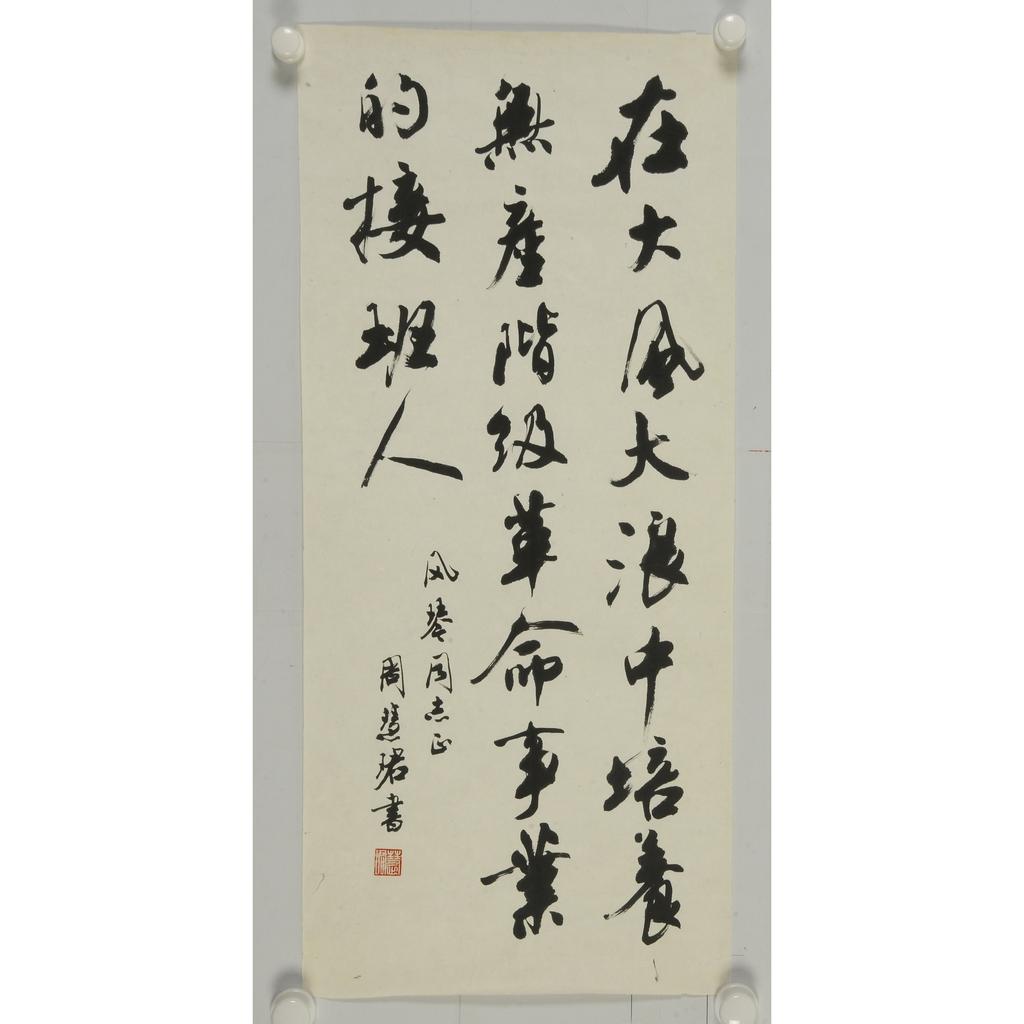 在大風大浪中培養
無產階級革命事業
的接班人
风琴同志正
周慧珺書